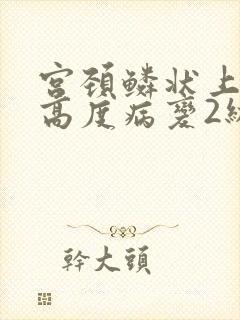 宫颈鳞状上
高度病变2级
幹大頭